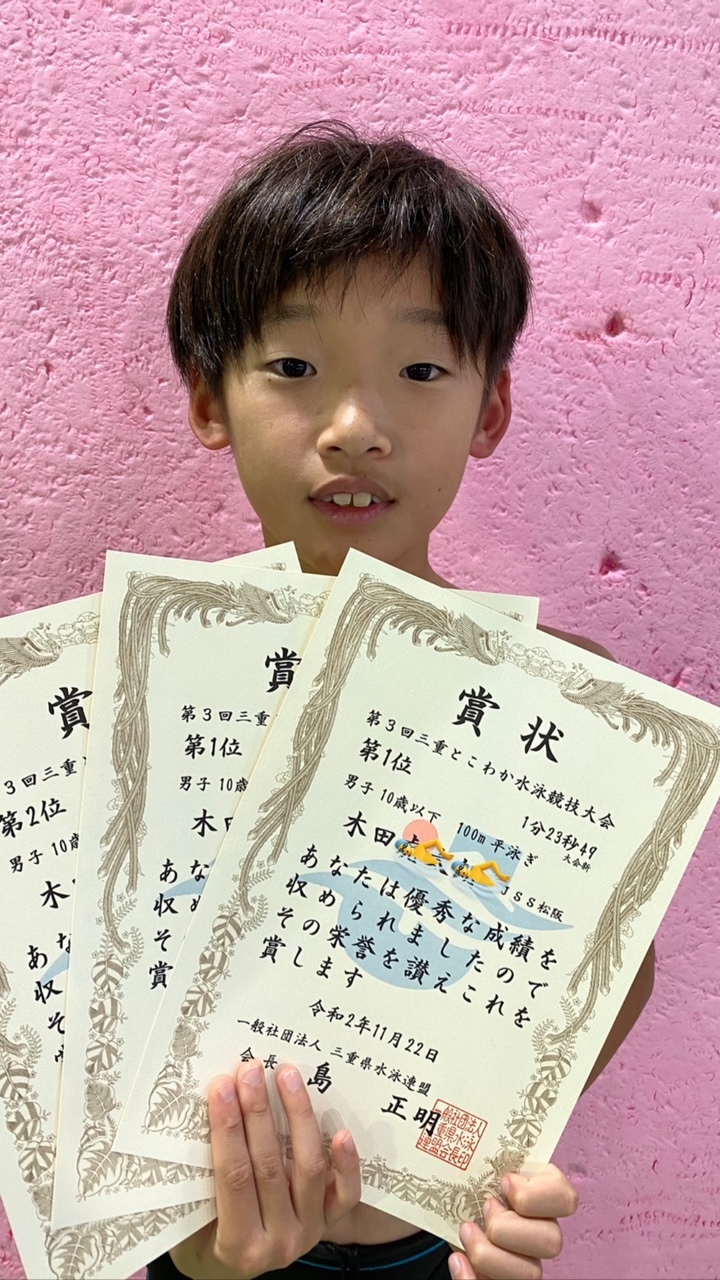 賞状
第3回三重とこわか水泳競技大会
第1位 1分23秒49
大会新
男子 10歳以下 100m 平泳ぎ
木田 JSS松阪
あなたは優秀な成績を
収められましたので
その栄誉を讃えこれを
賞します
令和2年11月22日
一般社団法人 三重県水泳連盟
会長 島 正明
一般社団法人
三重県水泳
連盟会長印
賞
第3回三重
第1位
男子 10歳
木
あな
収
そ
賞
賞
3回三重
第2位
男子 10
木
あ
収
そ